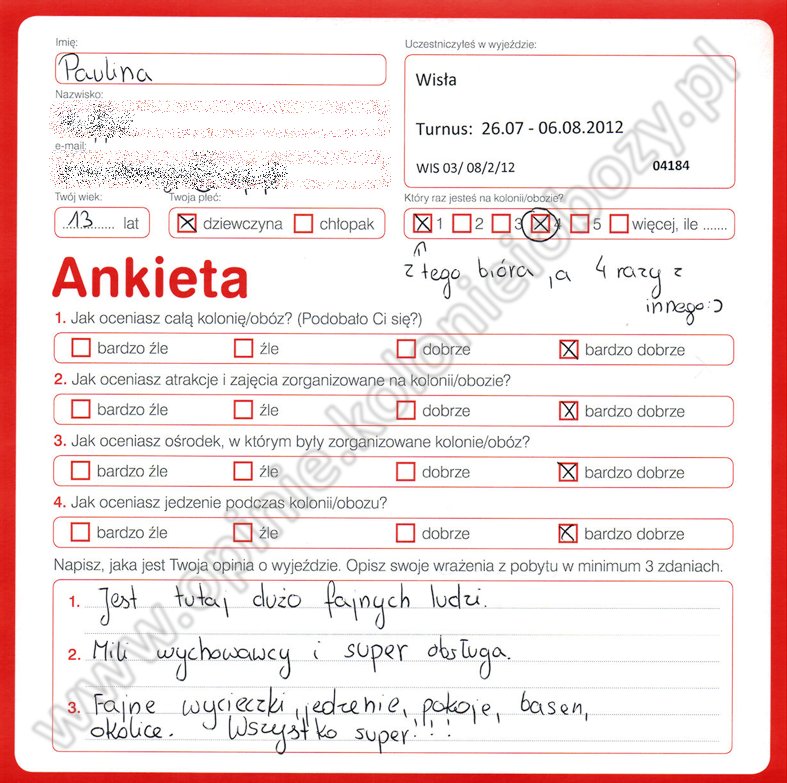 Imię:
Paulina
Uczestniczyłeś w wyjeździe:
Wisła
Turnus: 26.07 - 06.08.2012
WIS 03/ 08/2/12 04184
Nazwisko:
e-mail:
Twój wiek:
13 lat
Twoja płeć:
dziewczyna chłopak
Który raz jesteś na kolonii/obozie?
1 2 3 4 5 więcej, ile .......
z tego bióra, a 4 razy z
innego :)
Ankieta
1. Jak oceniasz całą kolonię/obóz? (Podobało Ci się?)
bardzo źle źle dobrze bardzo dobrze
2. Jak oceniasz atrakcje i zajęcia zorganizowane na kolonii/obozie?
bardzo źle źle dobrze bardzo dobrze
3. Jak oceniasz ośrodek, w którym były zorganizowane kolonie/obóz?
bardzo źle źle dobrze bardzo dobrze
4. Jak oceniasz jedzenie podczas kolonii/obozu?
bardzo źle źle dobrze bardzo dobrze
Napisz, jaka jest Twoja opinia o wyjeździe. Opisz swoje wrażenia z pobytu w minimum 3 zdaniach.
1. Jest tutaj dużo fajnych ludzi.
2. Mili wychowawcy i super obsługa.
3. Fajne wycieczki, jedzenie, pokoje, basen,
okolice. Wszystko super!!!
www.opinie.kolonieiobozy.pl